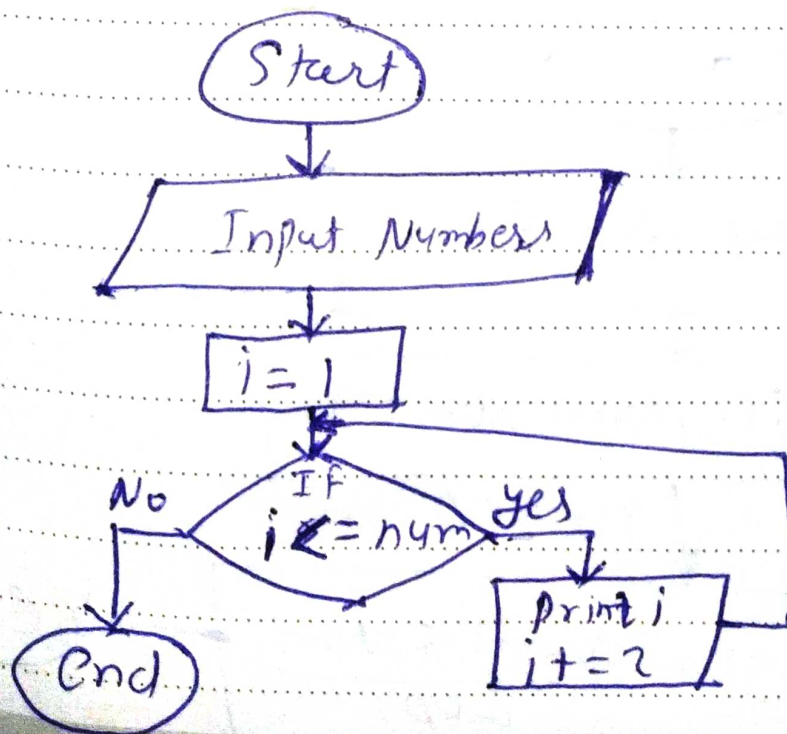 Start
Input Numbers
i = 1
If
i <= num
No
yes
print i
i += 2
End